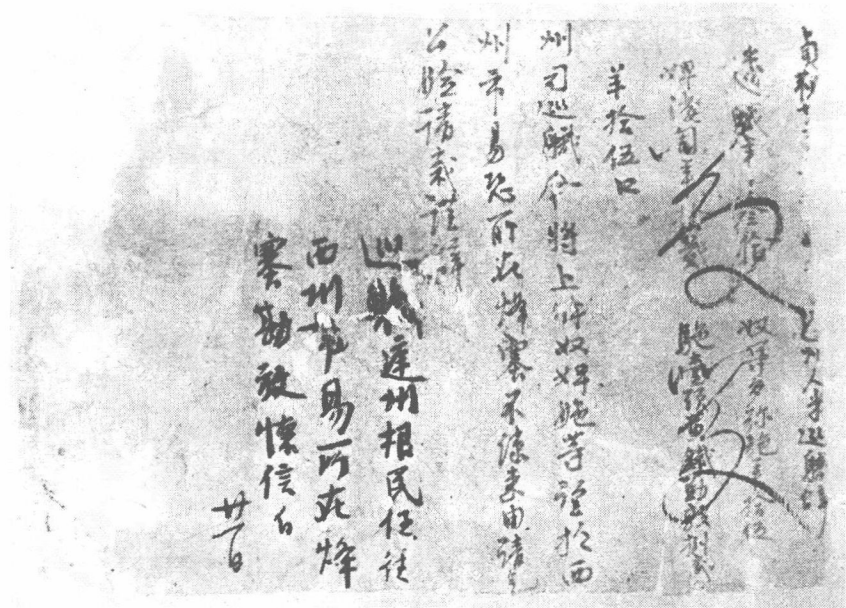 貞觀 州人米巡職辭
米巡職年叁拾 奴哥多弥施年拾伍
婢娑匐年拾貳 駞壹頭黃鐵勤敦捌歲
羊拾伍口
州司巡職今將上件奴婢駞等望於西
州市易恐所在烽塞不練来由請乞
公驗請裁謹辭
巡職庭州根民任往
西州市易所在烽
塞勘放懐信白
廿一日